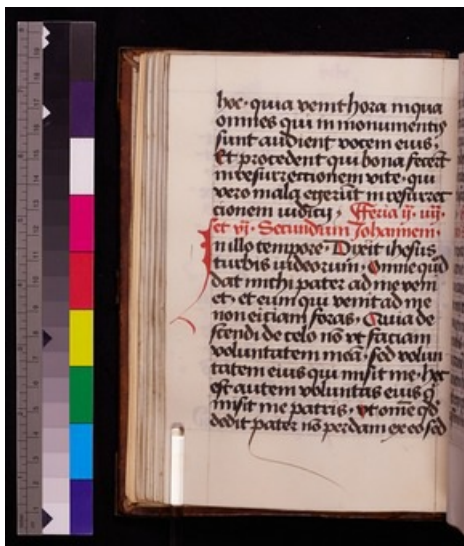 hoc· quia venit hora in qua
omnes qui in monumentis
sunt audient vocem eius,
Et procedent qui bona fecert̄
in resurrectionem vite· qui
vero mala egerūt in resurrec
cionem iudicij, Feria ij· iiij·
et vj· Secundum Johannem·
In illo tempore· Dixit ihesus
turbis iudeorum· Omne quod
dat michi pater ad me veni
et· et eum qui venit ad me
non eiciam foras· Quia de
scendi de celo nō vt faciam
voluntatem meā· sed volun
tatem eius qui misit me· hec
est autem voluntas eius q̄
misit me patris· vt om̄e qd̄
dedit pater nō perdam ex eo sed